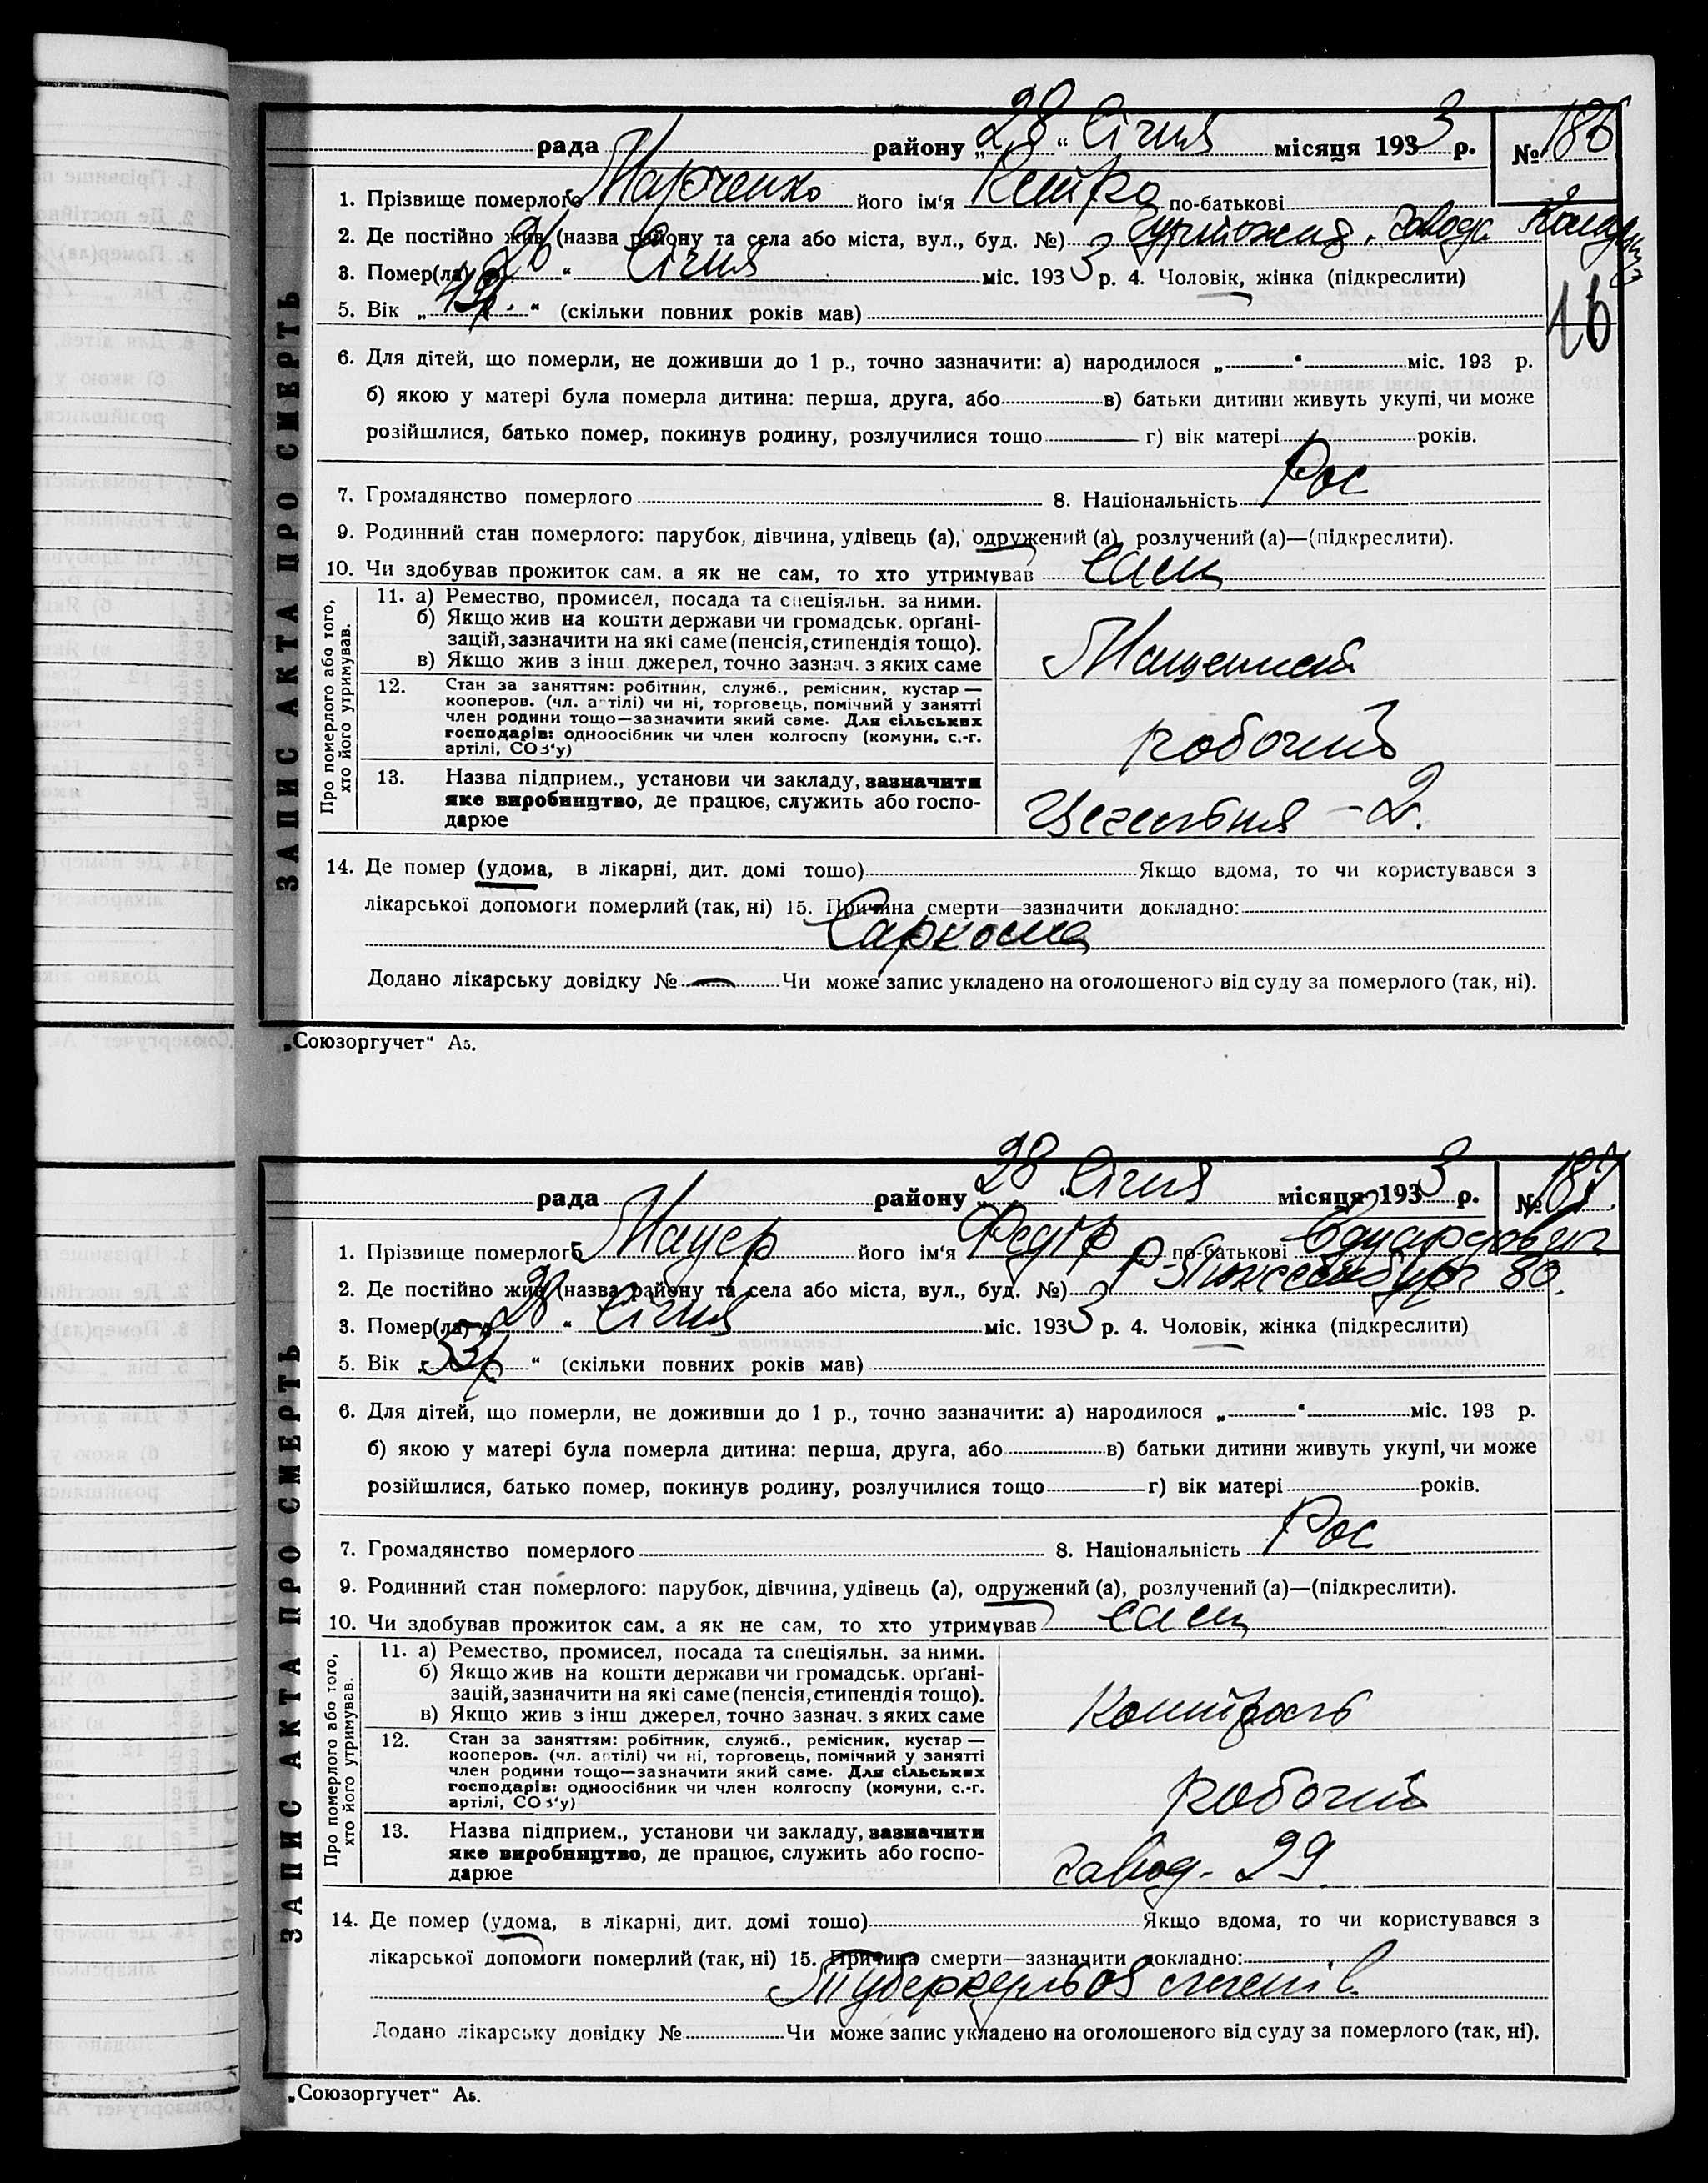 рада района „28“ Січня місяця 1933 р. № 186
1. Прізвище померлого Марченко його ім'я Петро по-батькові
2. Де постійно жив (назва району та села або міста, вул., буд. №)
3. Помер(ла) „26“ Січня міс. 1933 р. 4. Чоловік, жінка (підкреслити)
16
5. Вік „49“ (скільки повних років мав)
6. Для дітей, що померли, не доживши до 1 р., точно зазначити: а) народилося „ “ міс. 193 р.
б) якою у матері була померла дитина: перша, друга, або в) батьки дитини живуть укупі, чи може
розійшлися, батько помер, покинув родину, розлучилися тощо г) вік матері років.
7. Громадянство померлого 8. Національність Рос
9. Родинний стан померлого: парубок, дівчина, удівець (а), одружений (а), розлучений (а)—(підкреслити).
10. Чи здобував прожиток сам, а як не сам, то хто утримував сам
ЗАПИС АКТА ПРО СМЕРТЬ
Про померлого або того, хто його утримував.
11. а) Ремество, промисел, посада та спеціяльн. за ними.
б) Якщо жив на кошти держави чи громадськ. орґані-
зацій, зазначити на які саме (пенсія, стипендія тощо).
в) Якщо жив з інш. джерел, точно зазнач. з яких саме
12. Стан за заняттям: робітник, служб., ремісник, кустар —
кооперов. (чл. артілі) чи ні, торговець, помічний у занятті
член родини тощо—зазначити який саме. Для сільських
господарів: одноосібник чи член колгоспу (комуни, с.-г.
артілі, СОЗ'у)
робочий
13. Назва підприєм., установи чи закладу, зазначити
яке виробництво, де працює, служить або госпо-
дарює
Цегельня - 2.
14. Де помер (удома, в лікарні, дит. домі тощо) Якщо вдома, то чи користувався з
лікарської допомоги померлий (так, ні) 15. Причина смерти—зазначити докладно:
Саркома
Додано лікарську довідку № — Чи може запис укладено на оголошеного від суду за померлого (так, ні).
„Союзоргучет“ А5.
рада району „28“ Січня місяця 1933 р. № 187
1. Прізвище померлого Мауер його ім'я Федір по-батькові Едуардович
2. Де постійно жив (назва району та села або міста, вул., буд. №) Р. Люксембург 80.
3. Помер(ла) „28“ Січня міс. 1933 р. 4. Чоловік, жінка (підкреслити)
5. Вік „ “ (скільки повних років мав)
6. Для дітей, що померли, не доживши до 1 р., точно зазначити: а) народилося „ “ міс. 193 р.
б) якою у матері була померла дитина: перша, друга, або в) батьки дитини живуть укупі, чи може
розійшлися, батько помер, покинув родину, розлучилися тощо г) вік матері років.
7. Громадянство померлого 8. Національність Рос
9. Родинний стан померлого: парубок, дівчина, удівець (а), одружений (а), розлучений (а)—(підкреслити).
10. Чи здобував прожиток сам, а як не сам, то хто утримував сам
ЗАПИС АКТА ПРО СМЕРТЬ
Про померлого або того, хто його утримував.
11. а) Ремество, промисел, посада та спеціяльн. за ними.
б) Якщо жив на кошти держави чи громадськ. орґані-
зацій, зазначити на які саме (пенсія, стипендія тощо).
в) Якщо жив з інш. джерел, точно зазнач. з яких саме
Контроль
12. Стан за заняттям: робітник, служб., ремісник, кустар —
кооперов. (чл. артілі) чи ні, торговець, помічний у занятті
член родини тощо—зазначити який саме. Для сільських
господарів: одноосібник чи член колгоспу (комуни, с.-г.
артілі, СОЗ'у)
робочий
13. Назва підприєм., установи чи закладу, зазначити
яке виробництво, де працює, служить або госпо-
дарює
завод. 29.
14. Де помер (удома, в лікарні, дит. домі тощо) Якщо вдома, то чи користувався з
лікарської допомоги померлий (так, ні) 15. Причина смерти—зазначити докладно:
Туберкульоз легенів
Додано лікарську довідку № Чи може запис укладено на оголошеного від суду за померлого (так, ні).
„Союзоргучет“ А5.